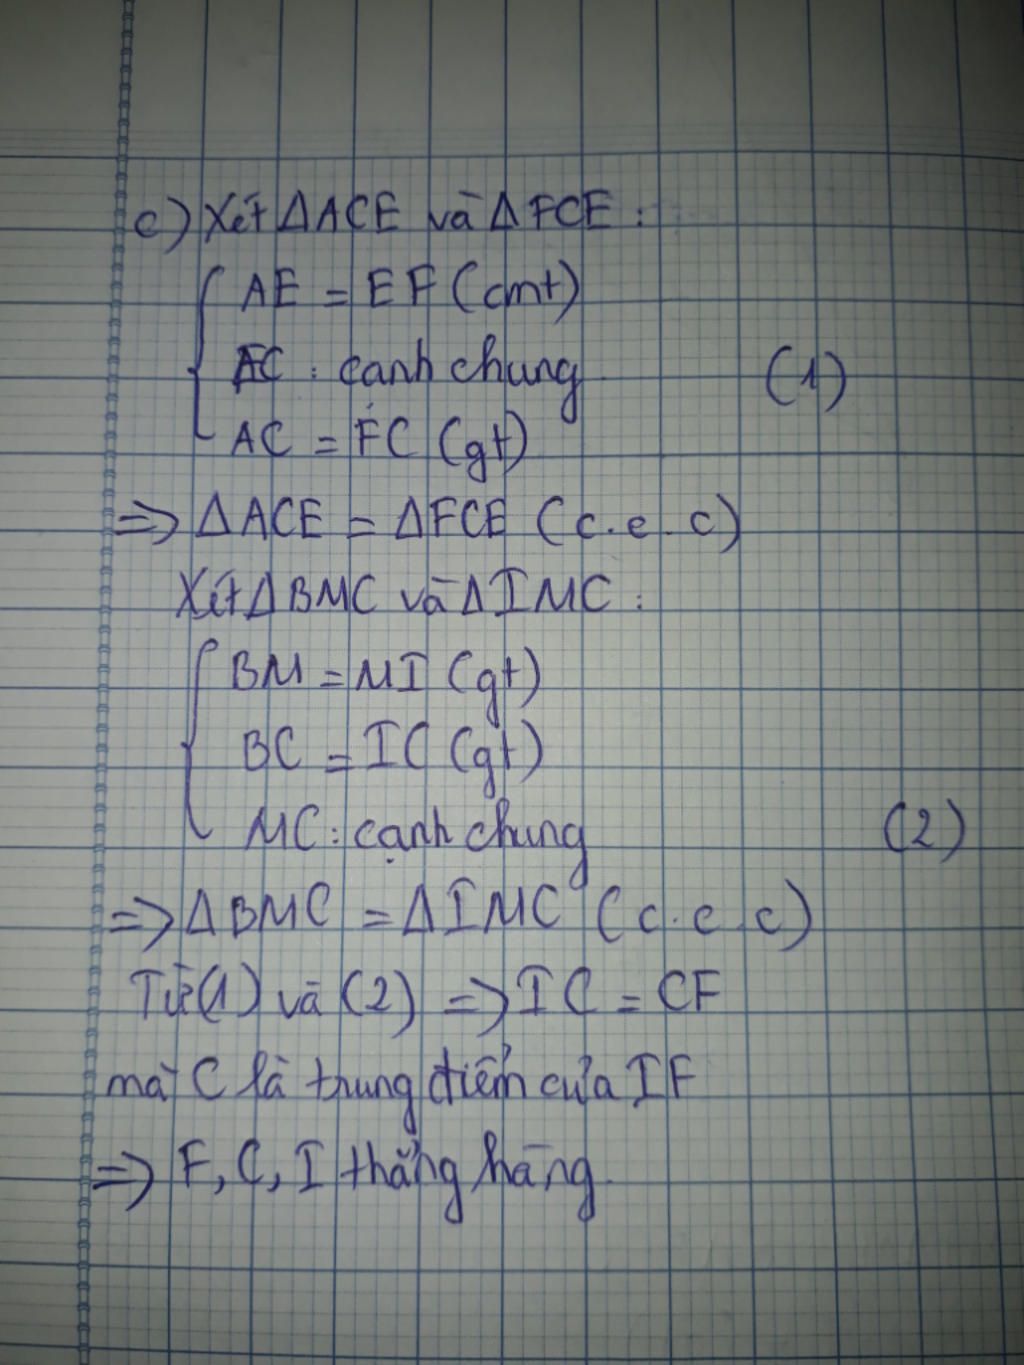 c) Xét ΔACE và ΔFCE :
AE = EF (cmt)
EC : cạnh chung (1)
AC = FC (gt)
=> ΔACE = ΔFCE (c.c.c)
Xét ΔBMC và ΔIMC :
BM = MI (gt)
BC = IC (gt)
MC : cạnh chung (2)
=> ΔBMC = ΔIMC (c.c.c)
Từ (1) và (2) => IC = CF
mà C là trung điểm của IF
=> F, C, I thẳng hàng.